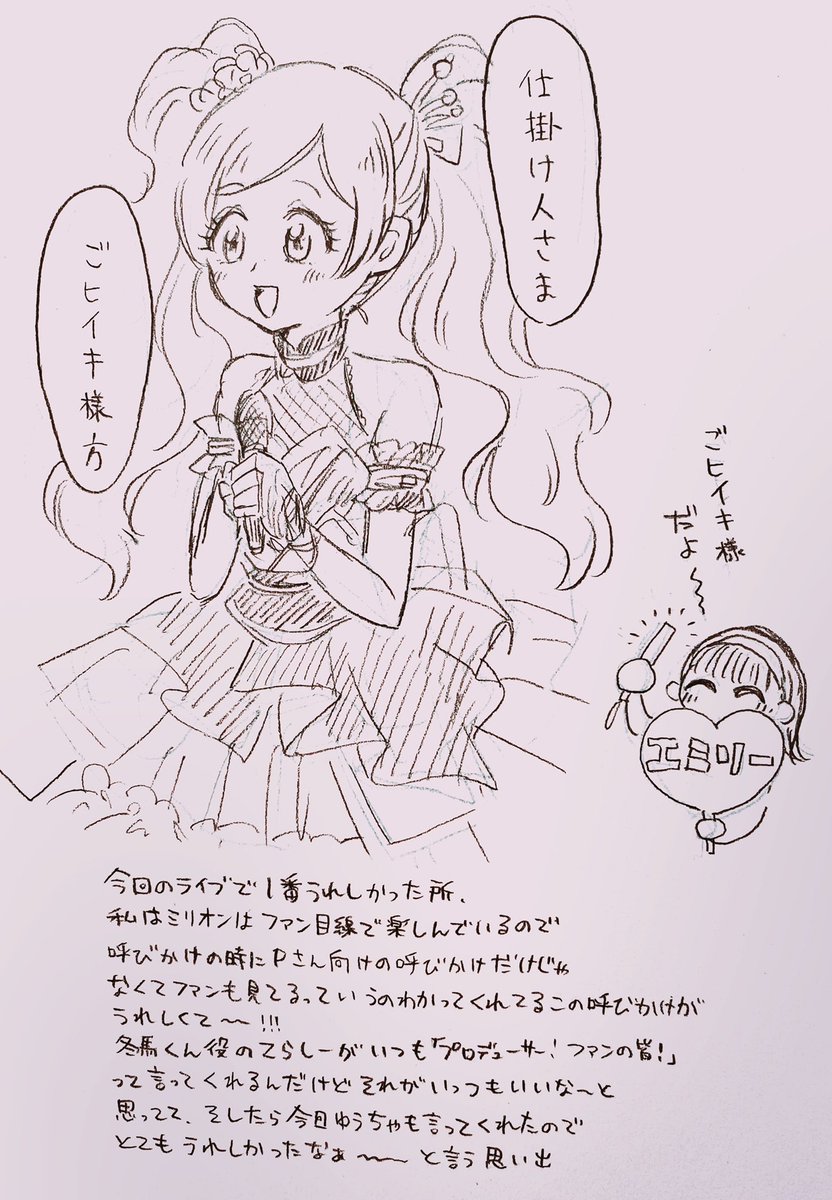 仕掛け人さま
ごヒイキ様方
ごヒイキ様
だよ〜
エミリー
今回のライブで1番うれしかった所、
私はミリオンはファン目線で楽しんでいるので
呼びかけの時にPさん向けの呼びかけだけじゃ
なくてファンも見てるっていうのわかってくれてるこの呼びかけが
うれしくて〜!!!
冬馬くん役のてらしーがいつも「プロデューサー!ファンの皆!」
って言ってくれるんだけどそれがいっつもいいな〜と
思ってて、そしたら今日ゆうちゃも言ってくれたので
とてもうれしかったなぁ〜〜と言う思い出